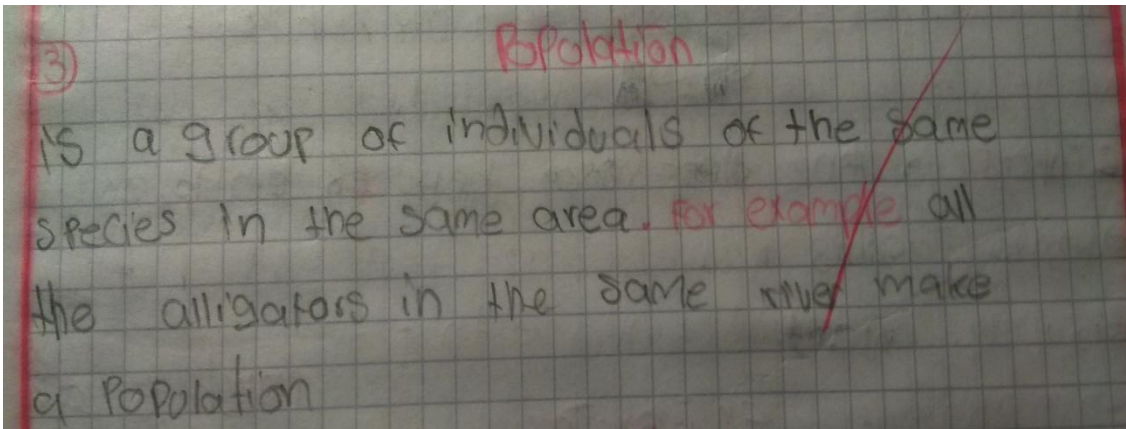 3) Popolation
is a group of individuals of the same
species in the same area. For example all
the alligators in the same river make
a Popolation